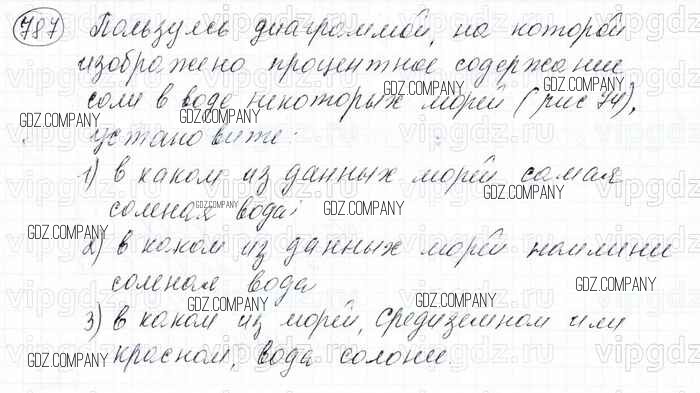 787 Пользуясь диаграммой, на которой
изображено процентное содержание
GDZ.COMPANY
соли в воде некоторых морей (рис 74),
GDZ.COMPANY GDZ.COMPANY GDZ.COMPANY
установите:
1) в каком из данных морей самая
GDZ.COMPANY
соленая вода;
GDZ.COMPANY GDZ.COMPANY
GDZ.COMPANY
2) в каком из данных морей наимение
соленая вода
GDZ.COMPANY
GDZ.COMPANY GDZ.COMPANY
3) в каком из морей, Средиземном или
красном, вода солоние.
GDZ.COMPANY GDZ.COMPANY